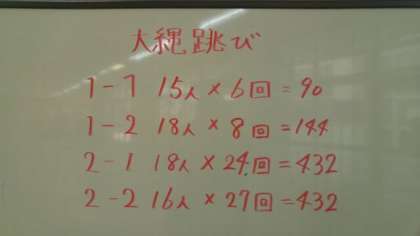 大縄跳び
1-1 15人×6回=90
1-2 18人×8回=144
2-1 18人×24回=432
2-2 16人×27回=432